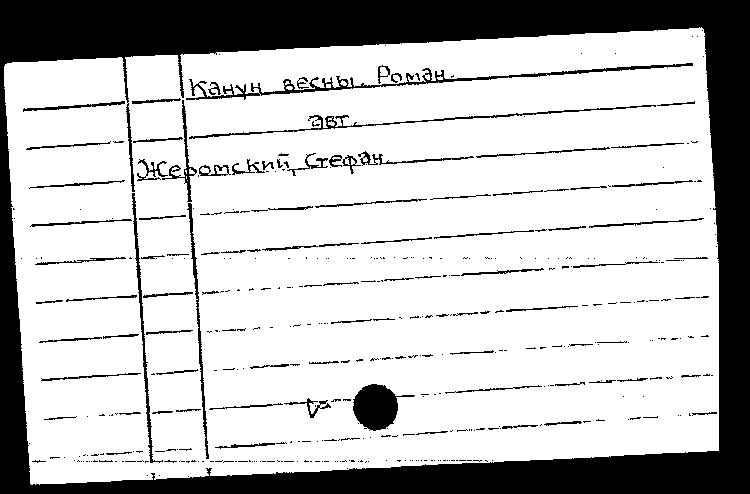 Канун весны. Роман.
авт.
Жеромский, Стефан.